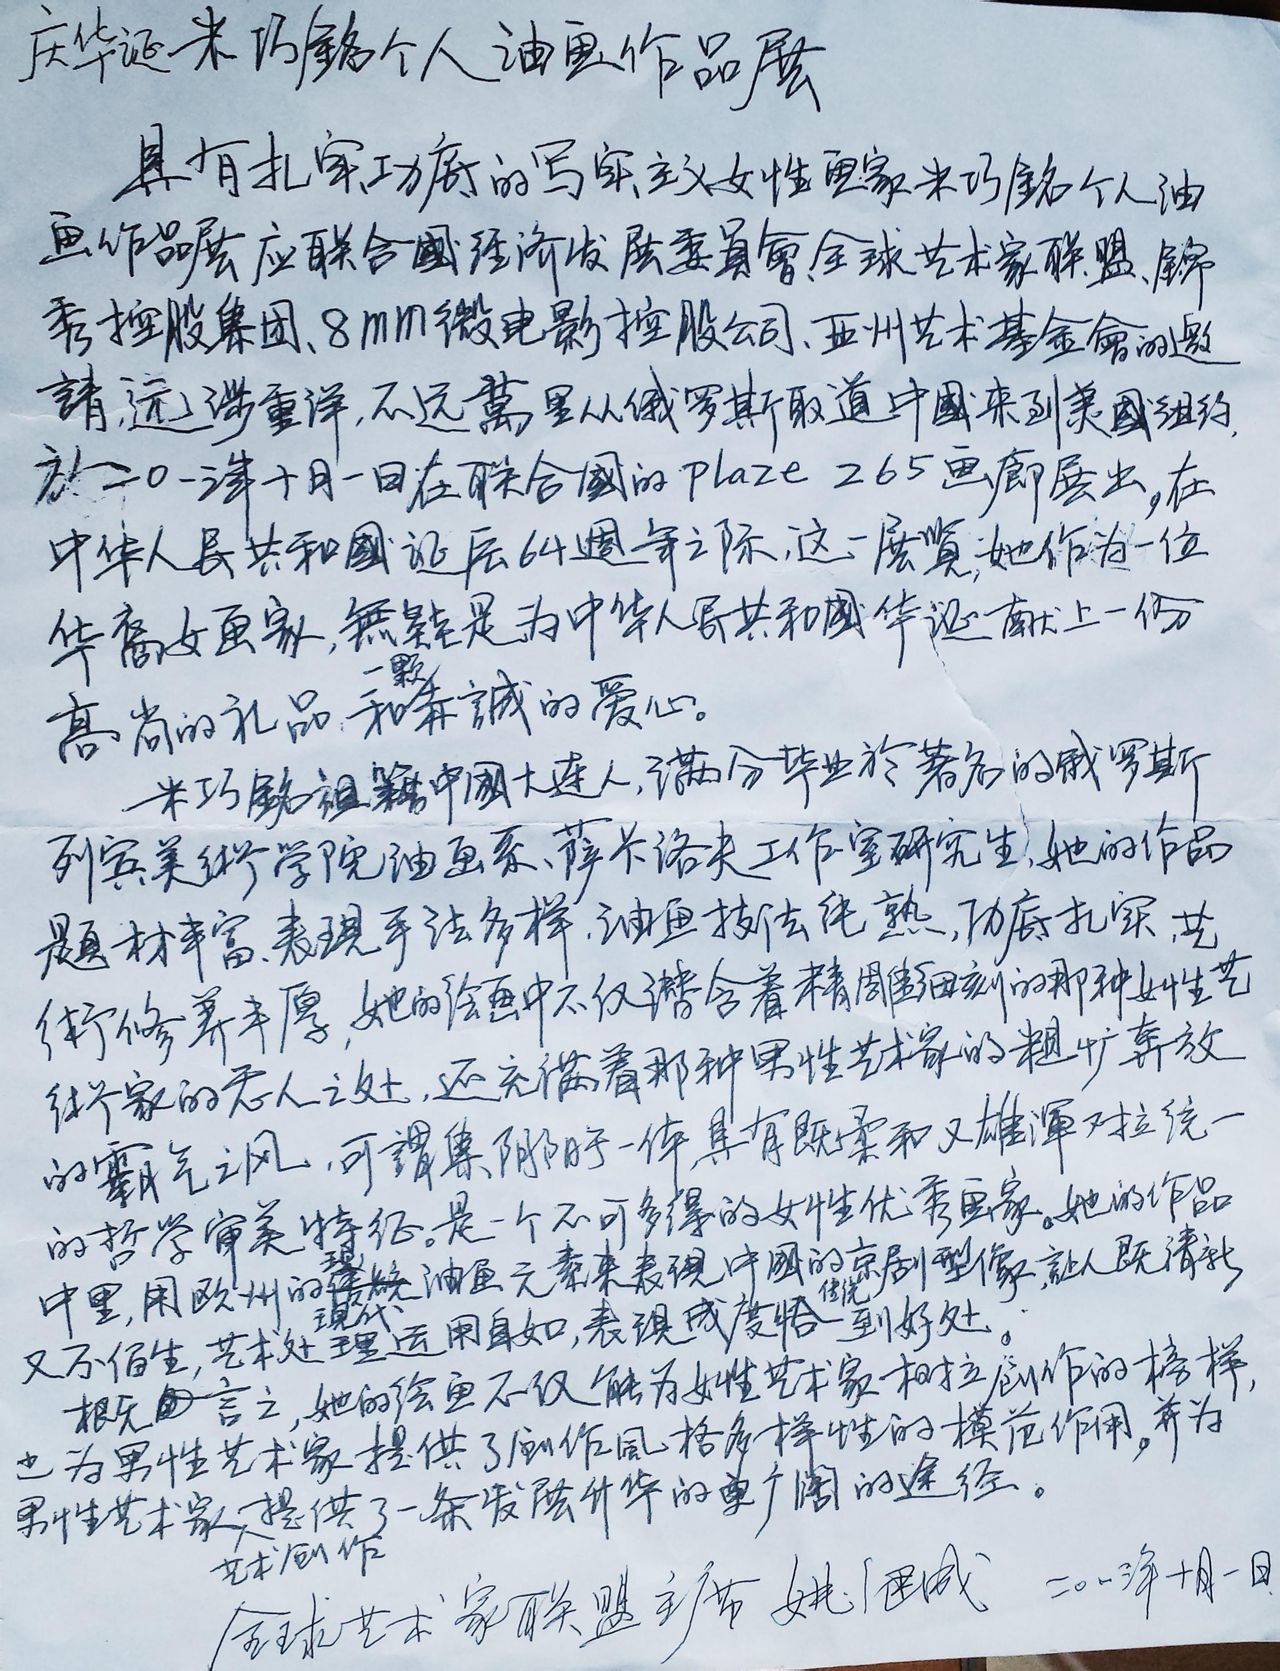 庆华诞米巧銘个人油画作品展
具有扎实功底的写实主义女性画家米巧銘个人油
画作品展应联合國经济发展委員會、全球艺术家联盟、錦
秀控股集团、8mm微电影控股公司、亚州艺术基金會的邀
請,远涉重洋,不远萬里从俄罗斯取道中國来到美國纽约,
於二〇一三年十月一日在联合國的plaze 265画廊展出。在
中华人民共和國诞辰64週年之际,这一展覽,她作为一位
华裔女画家,無疑是为中华人民共和國华诞献上一份
高尚的礼品和一颗赤誠的爱心。
米巧銘祖籍中國大连人,满分毕业於著名的俄罗斯
列宾美術学院油画系、萨卡洛夫工作室研究生,她的作品
题材丰富、表現手法多样,油画技法纯熟,功底扎实,艺
術修养丰厚,她的绘画中不仅潜含着精雕细刻的那种女性艺
術家的过人之处,还充满着那种男性艺术家的粗犷奔放
的霸气之风,可謂集阴阳于一体,具有既柔和又雄渾对拉统一
的哲学审美特征。是一个不可多得的女性优秀画家。她的作品
中里,用欧州的現代油画元素来表現中國的传统京剧型像,让人既清新
又不陌生,艺术处理运用自如,表現成度恰到好处。
概而言之,她的绘画不仅能为女性艺术家树立創作的榜样,
也为男性艺术家提供了創作風格多样性的模范作用。并为
男性艺术家艺术創作提供了一条发展升华的更广阔的途径。
全球艺术家联盟主席 姚 二〇一三年十月一日